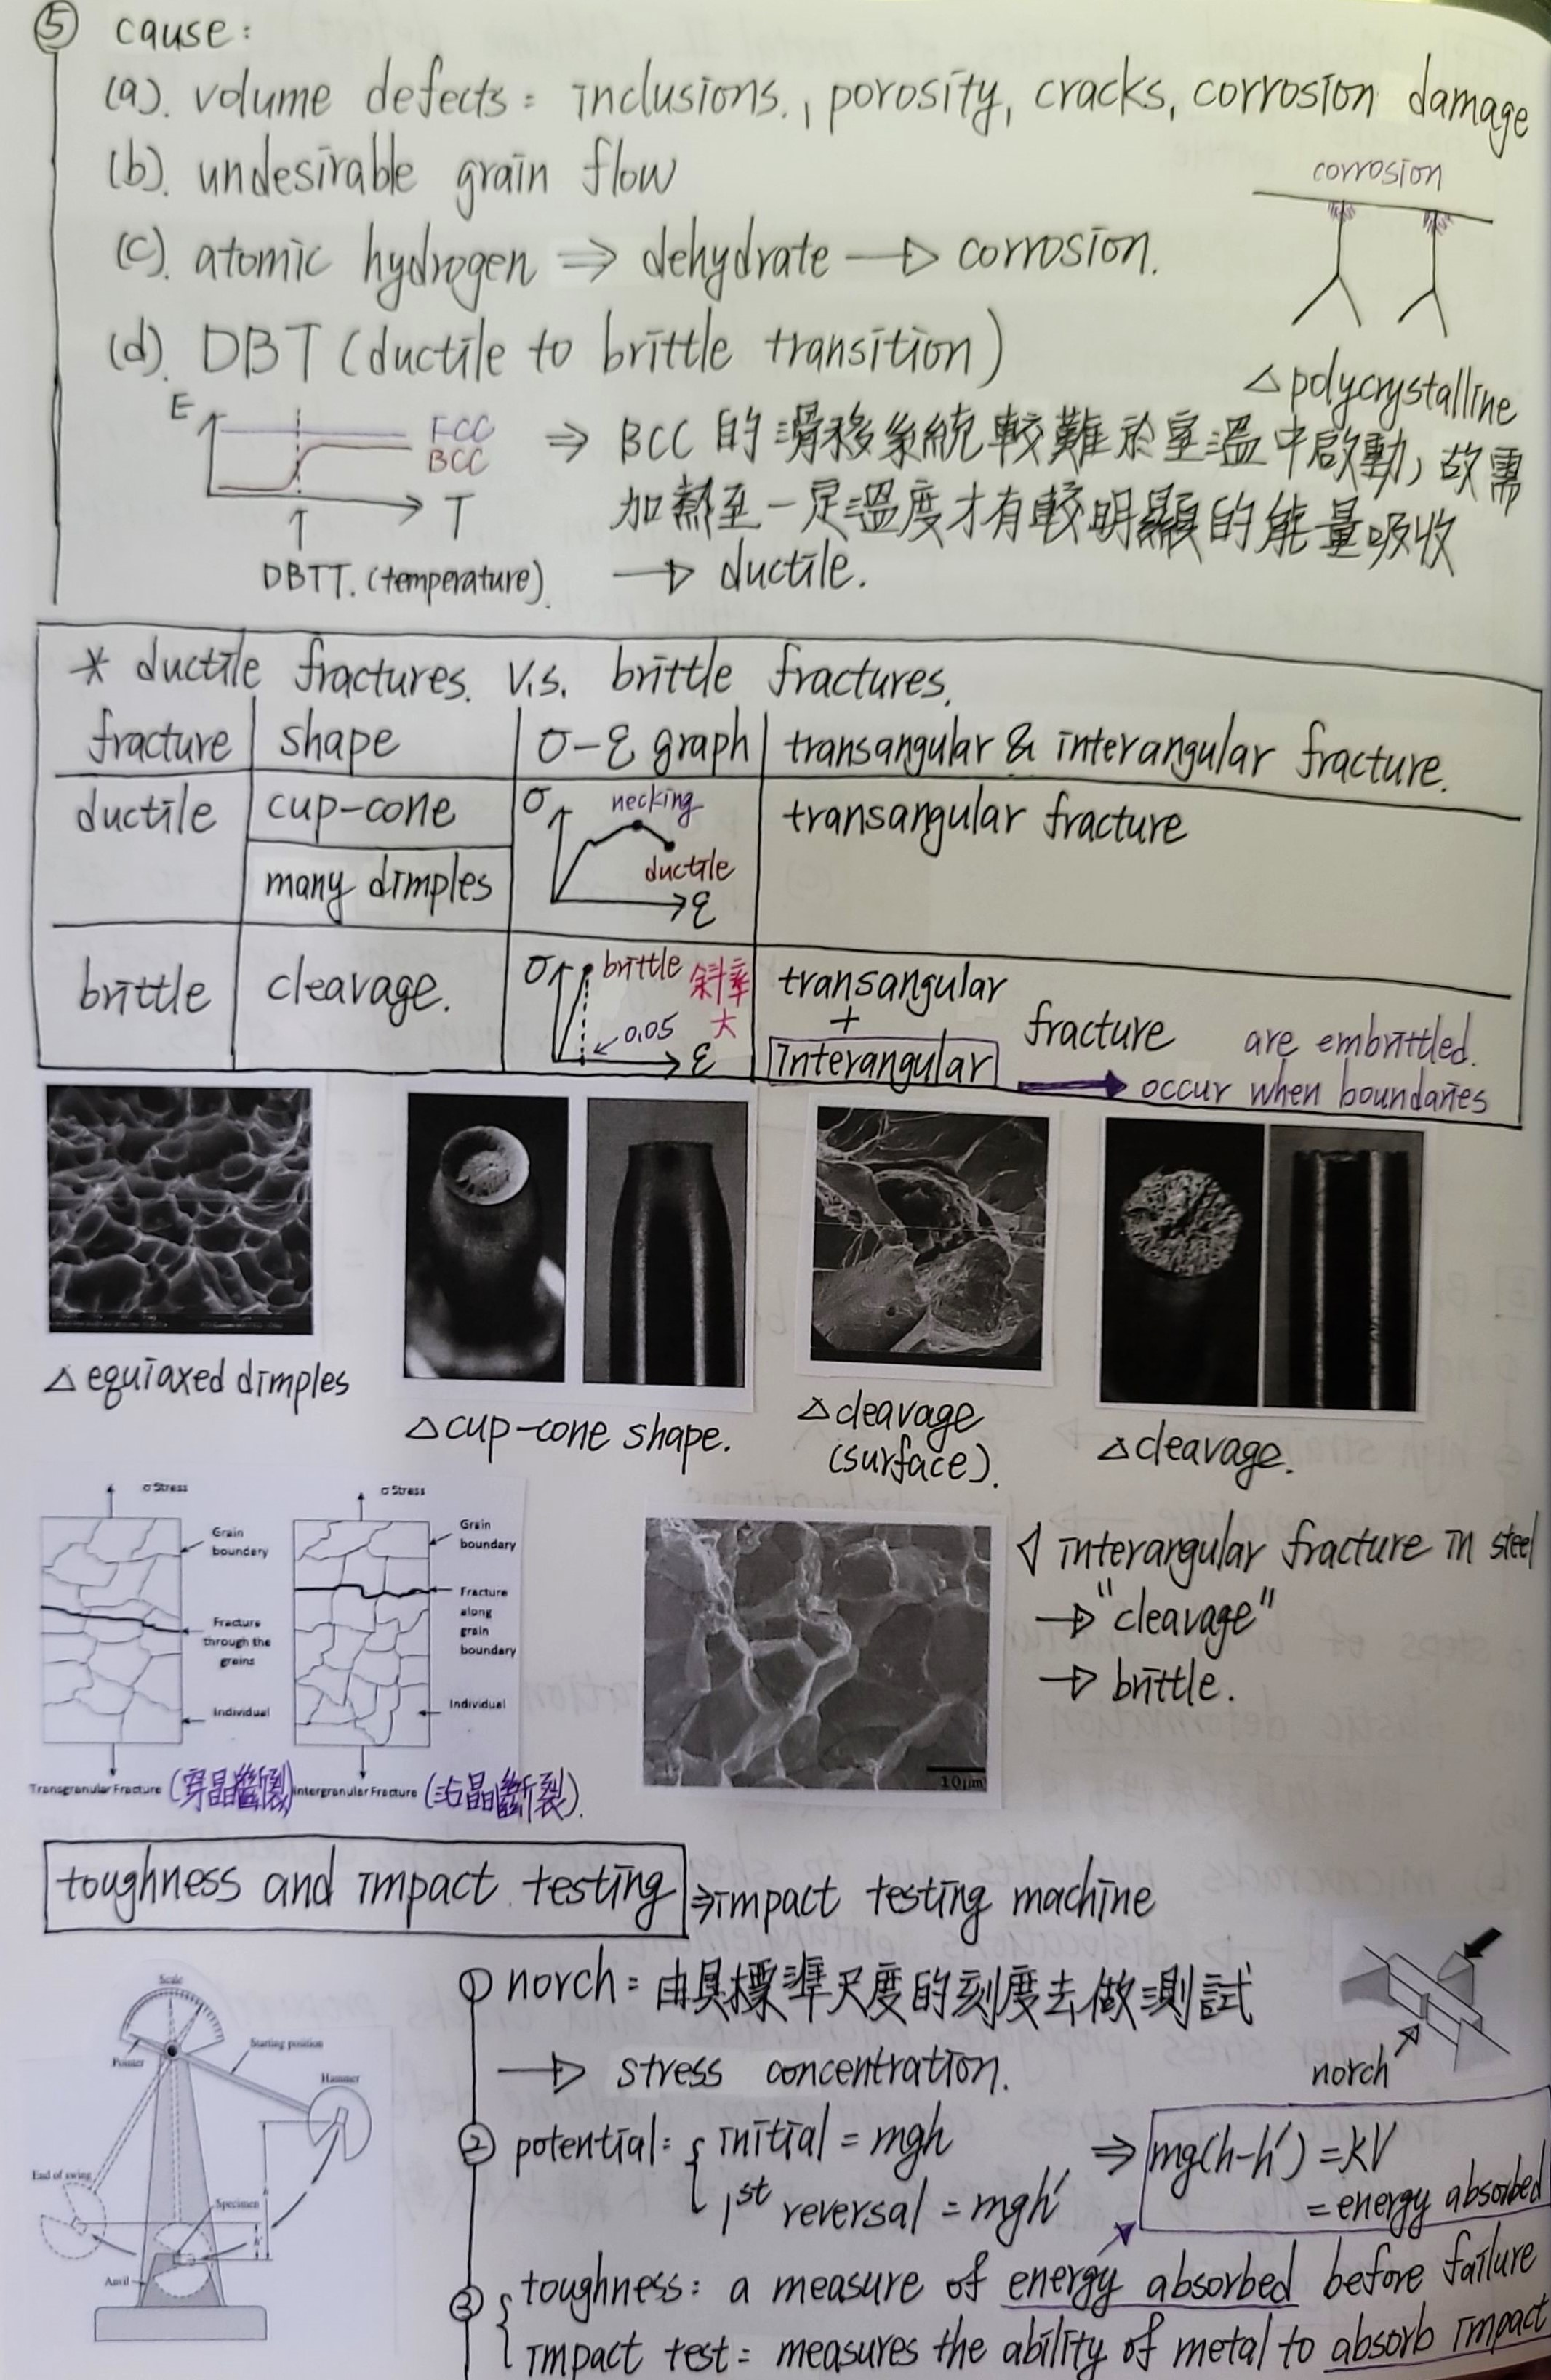 ⑤ cause:
(a). volume defects: inclusions., porosity, cracks, corrosion damage
(b). undesirable grain flow
(c). atomic hydrogen ⇒ dehydrate → corrosion.
corrosion
△ polycrystalline
(d). DBT (ductile to brittle transition)
E
FCC
BCC
T
DBTT. (temperature).
⇒ BCC 的滑移系統較難於室溫中啟動, 故需
加熱至一定溫度才有較明顯的能量吸收
→ ductile.
* ductile fractures. v.s. brittle fractures.
fracture shape σ-ε graph transangular & interangular fracture.
ductile cup-cone transangular fracture
many dimples
σ necking
ductile
ε
brittle cleavage.
σ brittle 斜率
大
0.05
ε
transangular
+
interangular
fracture
are embrittled.
occur when boundaries
△ equiaxed dimples
△ cup-cone shape.
△ cleavage
(surface).
△ cleavage.
σ Stress
Grain
boundary
Fracture
through the
grains
Individual
Transgranular Fracture (穿晶斷裂)
σ Stress
Grain
boundary
Fracture
along
grain
boundary
Individual
Intergranular Fracture (沿晶斷裂).
10μm
◁ interangular fracture in steel
→ "cleavage"
→ brittle.
toughness and impact testing ⇒ impact testing machine
① norch: 由具標準尺度的刻度去做測試
→ stress concentration.
norch
② potential: { initial = mgh
1st reversal = mgh'
⇒ mg(h-h') = KV
= energy absorbed
③ { toughness: a measure of energy absorbed before failure
impact test: measures the ability of metal to absorb impact
Scale
Pointer
Starting position
Hammer
End of swing
Specimen
h
h'
Anvil